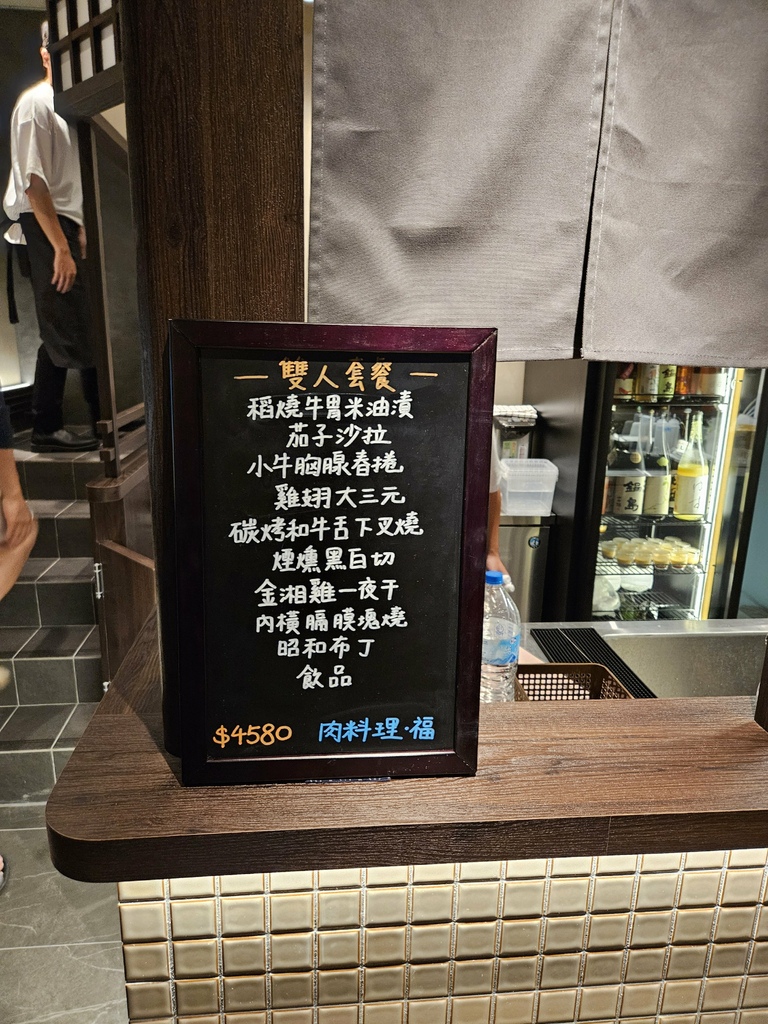 — 雙人套餐 —
稻燒牛胃米油漬
茄子沙拉
小牛胸腺春捲
雞翅大三元
碳烤和牛舌下叉燒
煙燻黑白切
金湘雞一夜干
內橫膈膜塊燒
昭和布丁
飲品
$4580 肉料理·福
鍋島